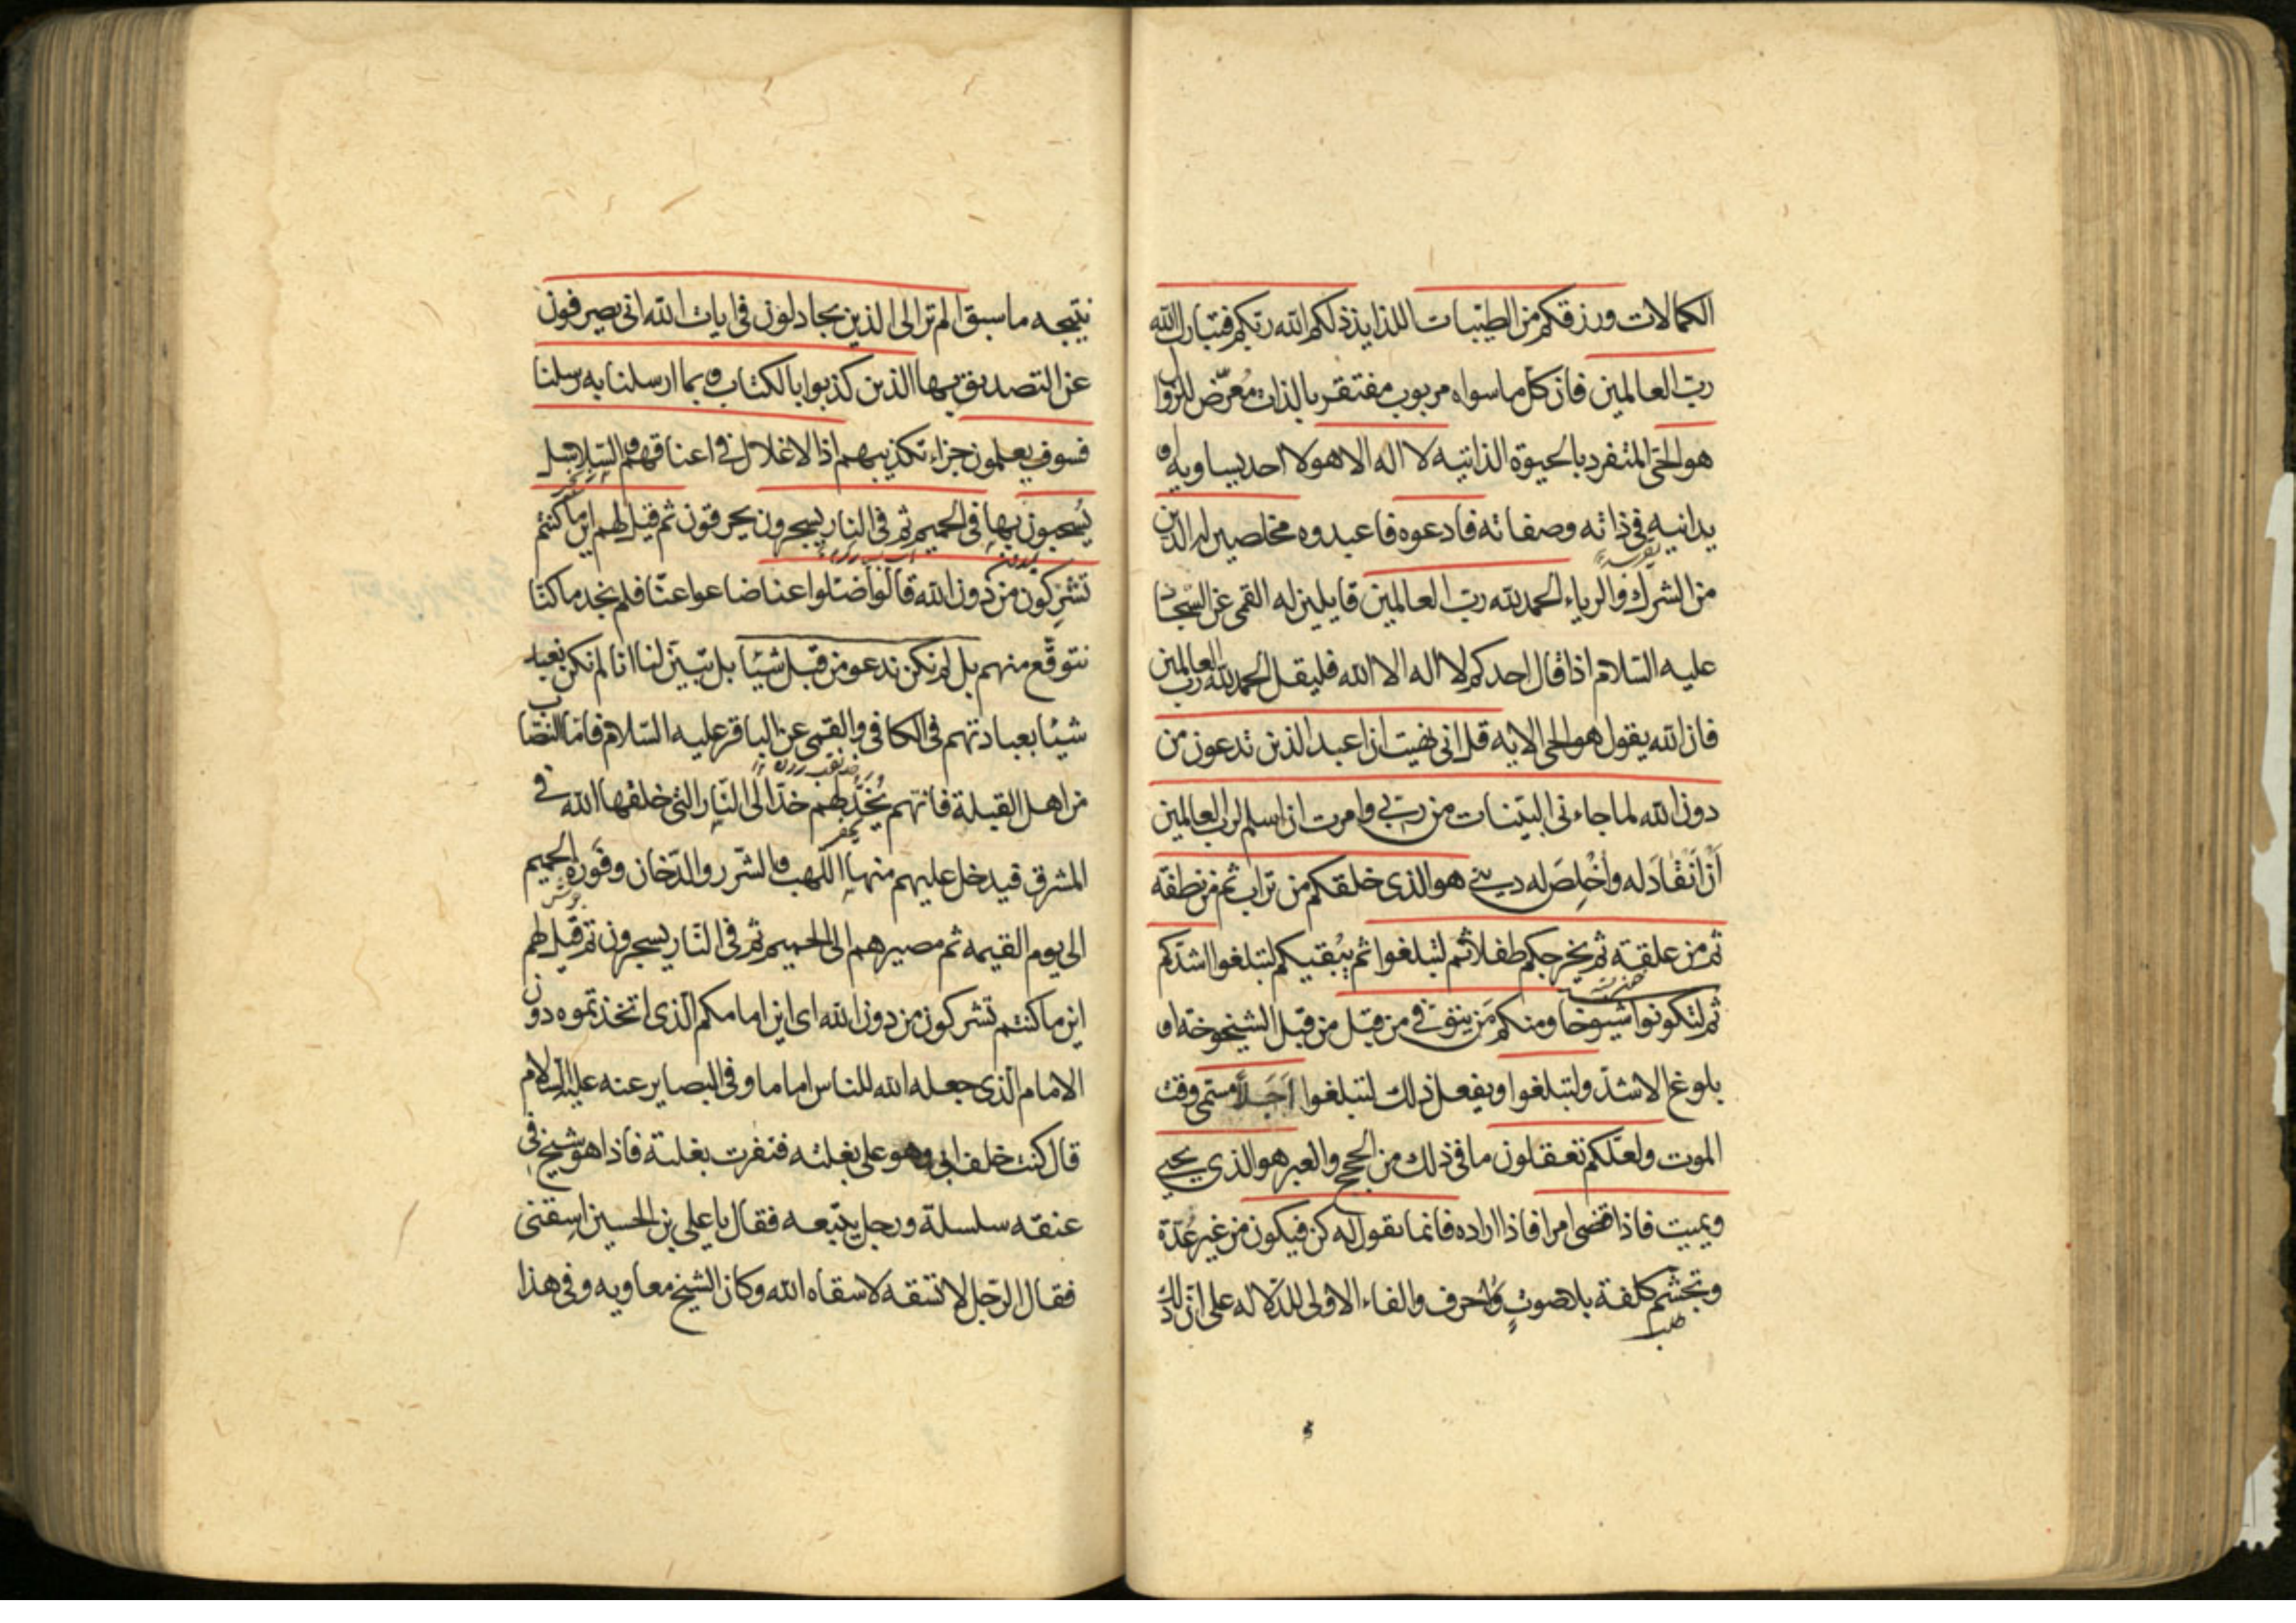 الكمالات ورزقكم من الطيبات اللذايذ ذلكم الله ربكم فتبارك الله
رب العالمين فان كل ما سواه مربوب مفتقر بالذات مُعرّض للزوال
هو الحى المتفرد بالحيوة الذاتيه لا اله الا هو لا احد يساويه او
يدانيه فى ذاته وصفاته فادعوه فاعبدوه مخلصين له الدين
من الشرك والرياء الحمد لله رب العالمين قايلين له القمى عن السجاد
عليه السّلام اذا قال احدكم لا اله الا الله فليقل الحمد لله رب العالمين
فان الله يقول هو الحى الايه قل انى نهيت ان اعبد الذين تدعون من
دون الله لما جاءنى البيّنات من ربى وامرت ان اسلم لرب العالمين
أَن اَنْقادَ له واُخْلِصَ له دينى هو الذى خلقكم من تراب ثم من نطفه
ثم من علقته ثم يخرجكم طفلا ثم لتبلغوا ثم يُبْقيكم لتبلغوا اشدّكم
ثم لتكونوا شيوخا ومنكم مَن يتوفى من قبل من قبل الشيخوخة او
بلوغ الاشدّ ولتبلغوا ويفعل ذلك لتبلغوا اَجَلاً مسمى وقت
الموت ولعلّكم تعقلون ما فى ذلك من الحجج والعبر هو الذى يحيى
ويميت فاذا قضى امرا فاذا اراده فانما يقول له كن فيكون من غير عُدّة
وتجشّم كلفة بلا صوتٍ ولا حرف والفاء الاولى للدّلاله على انّ ذلك
نتيجه ما سبق الم تر الى الذين يجادلون فى ايات الله انى يصرفون
عن التصديق بها الذين كذبوا بالكتاب وبما ارسلنا به رسلنا
فسوف يعلمون جزاء تكذيبهم اذ الاغلال فى اعناقهم والسّلاسل
يُسحبون بها فى الحميم ثم فى النار يسجرون يحرقون ثم قيل لهم اين ما كنتم
تشركون من دون الله قالوا ضلوا عنا ضاعوا عنّا فلم نجد ما كنّا
نتوقّع منهم بل لم نكن ندعو من قبل شيئا بل تبيّن لنا انا لم نكن نعبد
شيئا بعبادتهم فى الكافى والقمى عن الباقر عليه السّلام فامّا النصّاب
من اهل القبلة فانهم يُخَدُّ لهم خدّا الى النّار التى خلقها الله فى
المشرق فيدخل عليهم منها اللّهب والشّرر والدّخان وفَورَة الحميم
الى يوم القيمه ثم مصيرهم الى الحميم ثم فى النّار يسجرون ثم قيل لهم
اين ما كنتم تشركون من دون الله اى اين امامكم الّذى اتخذتموه دون
الامام الّذى جعله الله للناس اماما وفى البصاير عنه عليه السلام
قال كنت خلف ابى وهو على بغلته فنفرت بغلته فاذا هو شيخ فى
عنقه سلسلة ورجل يتبعه فقال يا على بن الحسين اسقنى
فقال الرّجل لا تسقه لا سقاه الله وكان الشيخ معاويه وفى هذا